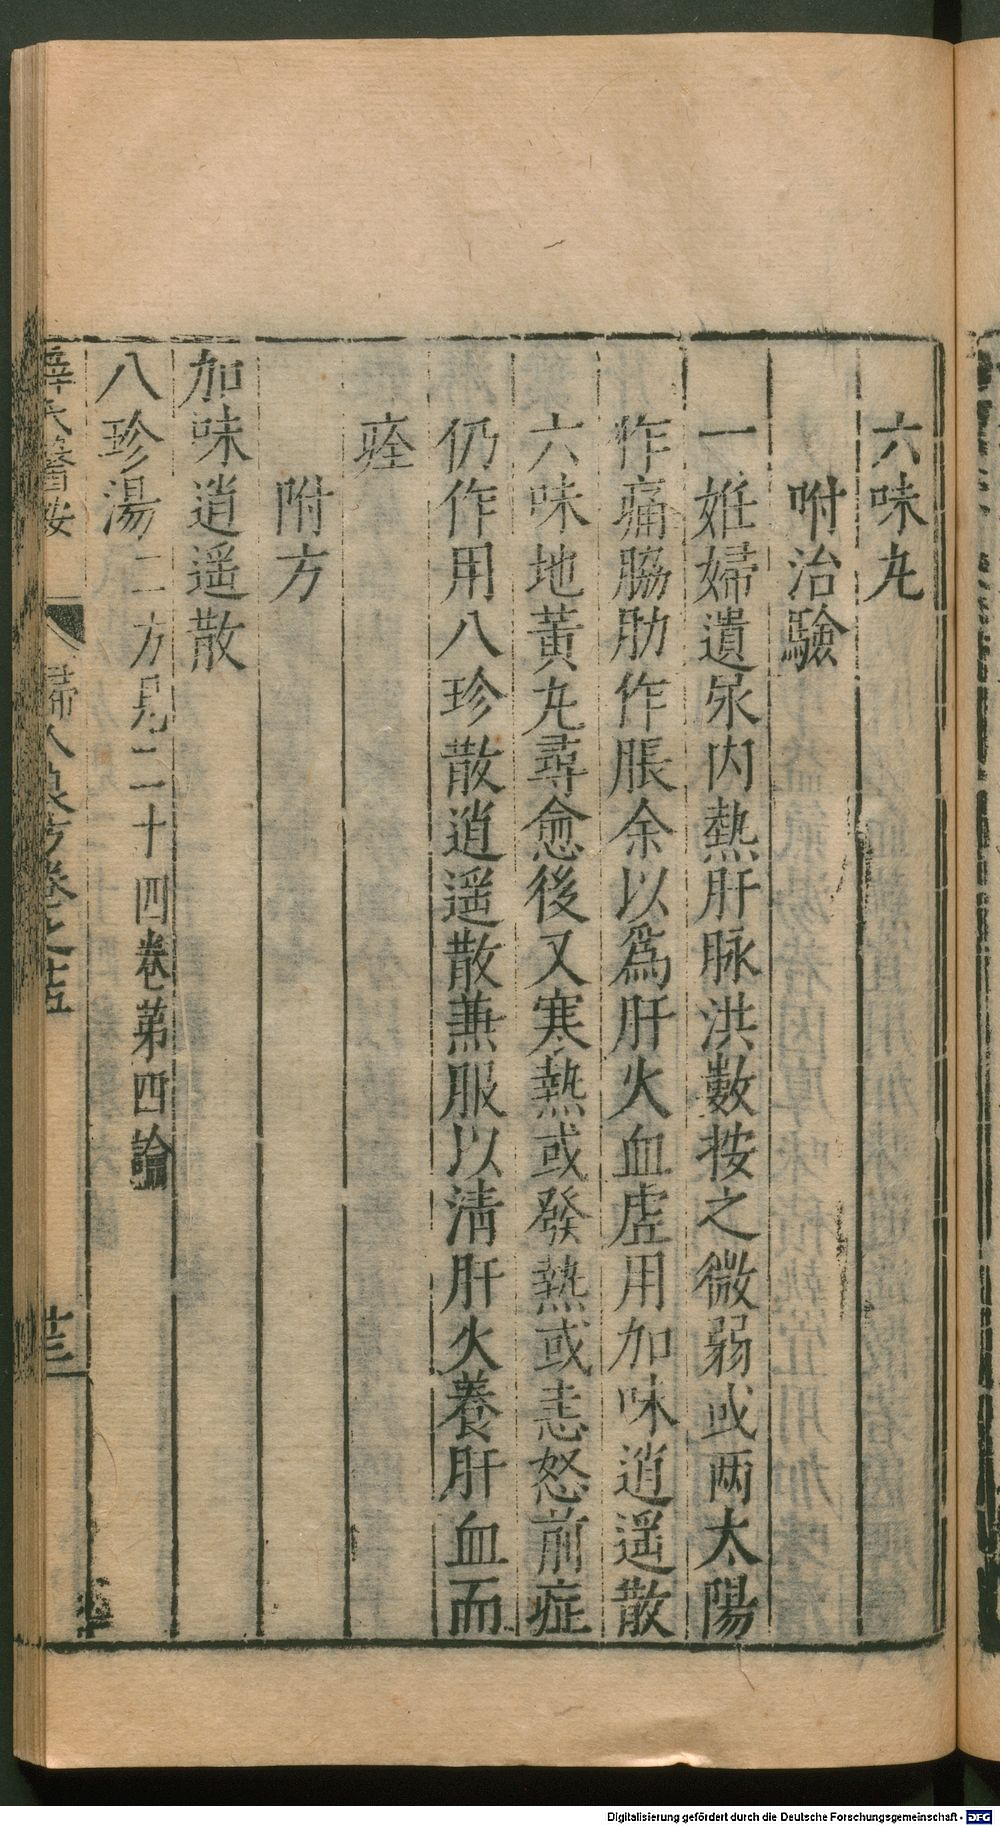 六味丸
附治驗
一妊婦遺尿内熱肝脉洪數按之微弱或两太陽
作痛脇肋作脹余以爲肝火血虛用加味逍遥散
六味地黃丸尋愈後又寒熱或發熱或恚怒前症
仍作用八珍散逍遥散兼服以清肝火養肝血而
痊
附方
加味逍遥散
八珍湯二方見二十四卷第四論
薛氏醫按 婦人良方卷之十五 廿三
Digitalisierung gefördert durch die Deutsche Forschungsgemeinschaft - DFG